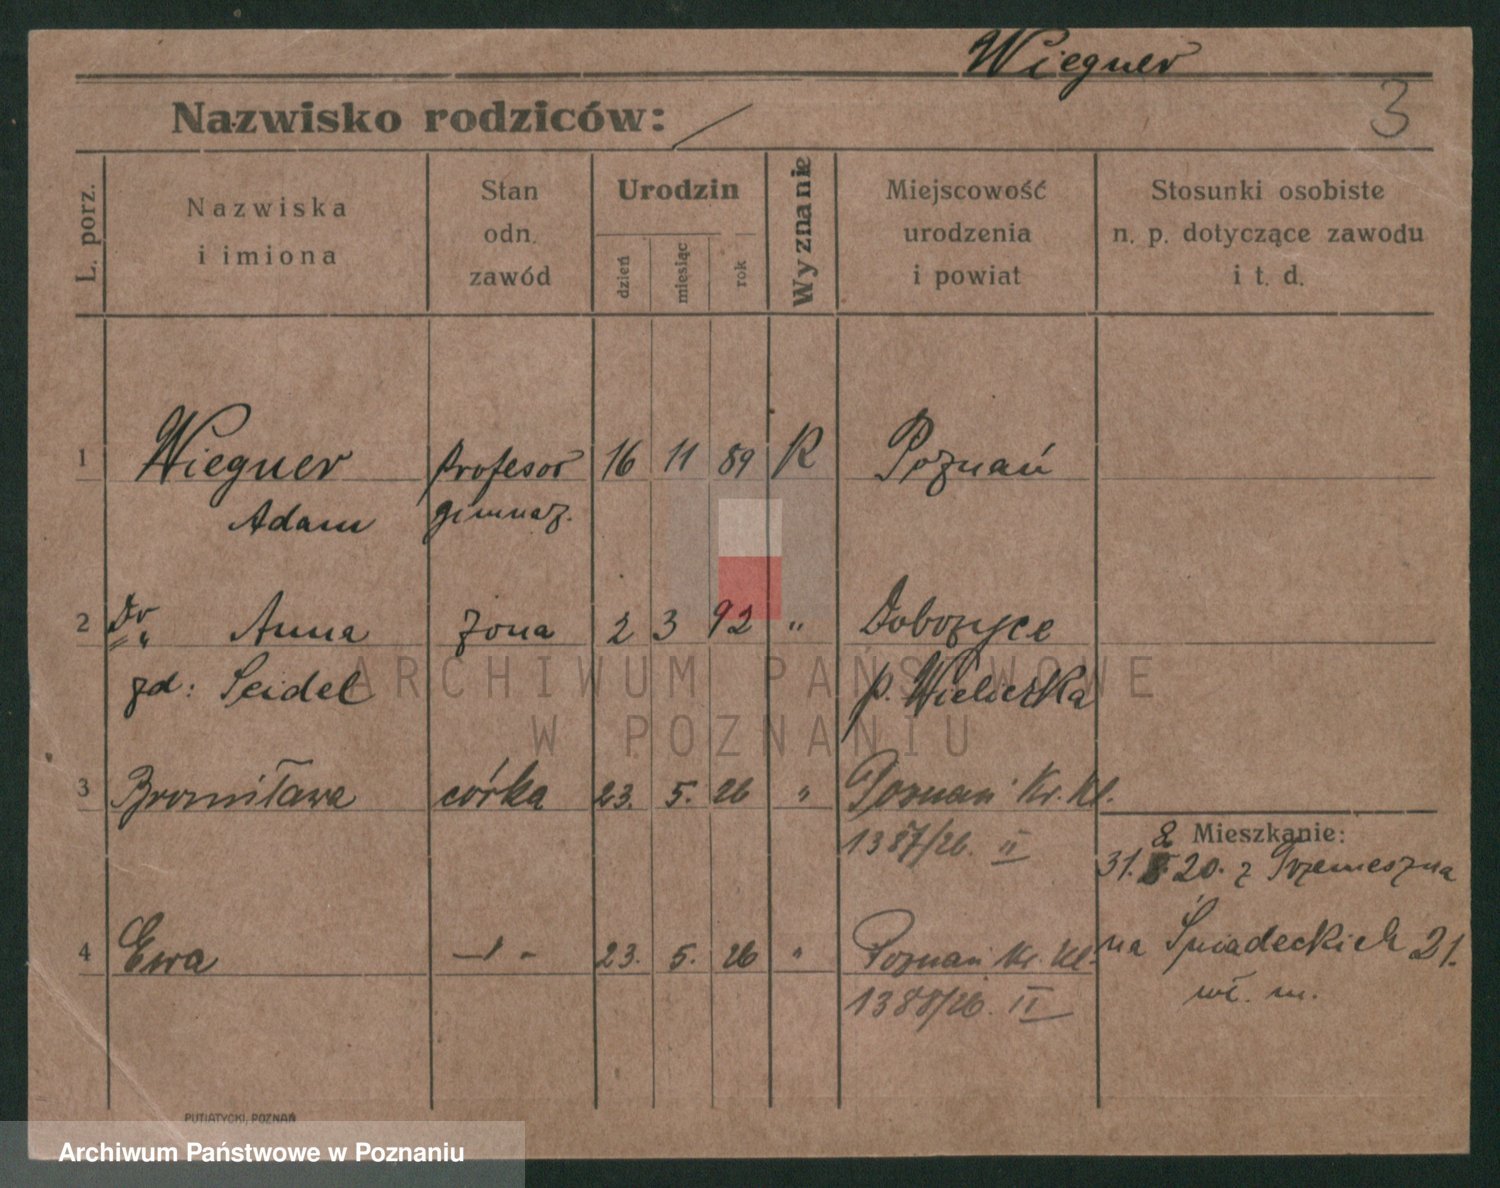 Wiegner
Nazwisko rodziców: /
3
L. porz.
Nazwiska
i imiona
Stan
odn.
zawód
Urodzin
dzień
miesiąc
rok
Wyznanie
Miejscowość
urodzenia
i powiat
Stosunki osobiste
n. p. dotyczące zawodu
i t. d.
1 Wiegner Profesor 16 11 89 R Poznań
Adam gimnaz.
2 Dr „ Anna żona 2 3 92 „ Dobczyce
zd: Seidel p. Wieliczka
ARCHIWUM PAŃSTWOWE
W POZNANIU
3 Bronisława córka 23. 5. 26 „ Poznań Kr. Kl.
1387/26. II
Mieszkanie:
31. 8 20. z Przemeszna
4 Ewa –„– 23. 5. 26 „ Poznań Kr. Kl.
1388/26. II
na Śniadeckich 21.
wł. m.
PUTIATYCKI, POZNAŃ
Archiwum Państwowe w Poznaniu